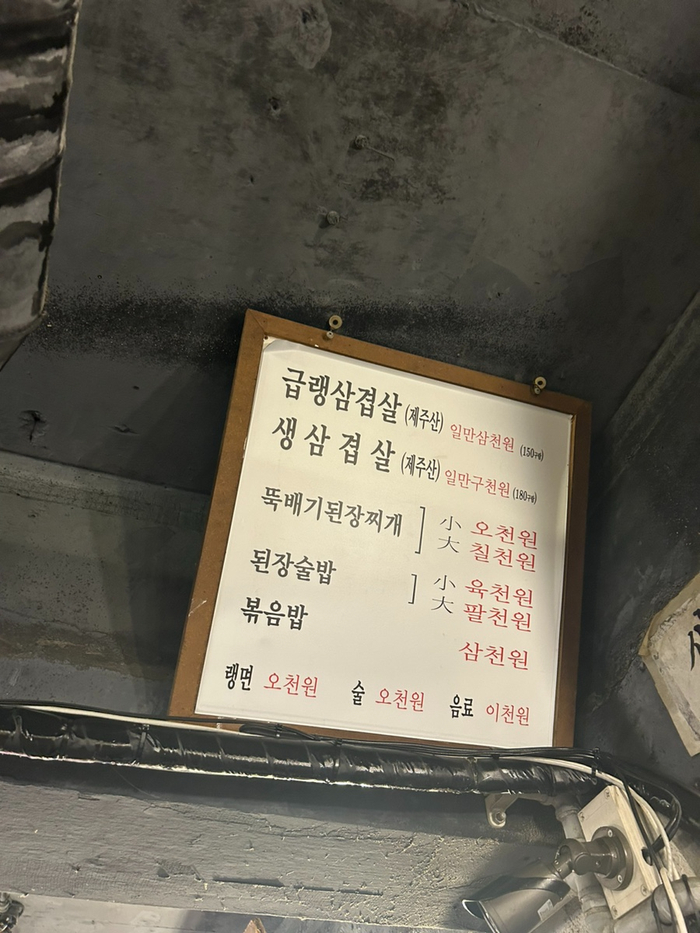 급랭삼겹살 (제주산) 일만삼천원 (150g)
생삼겹살 (제주산) 일만구천원 (180g)
뚝배기된장찌개 ] 小 오천원
大 칠천원
된장술밥 ] 小 육천원
大 팔천원
볶음밥 삼천원
랭면 오천원 술 오천원 음료 이천원